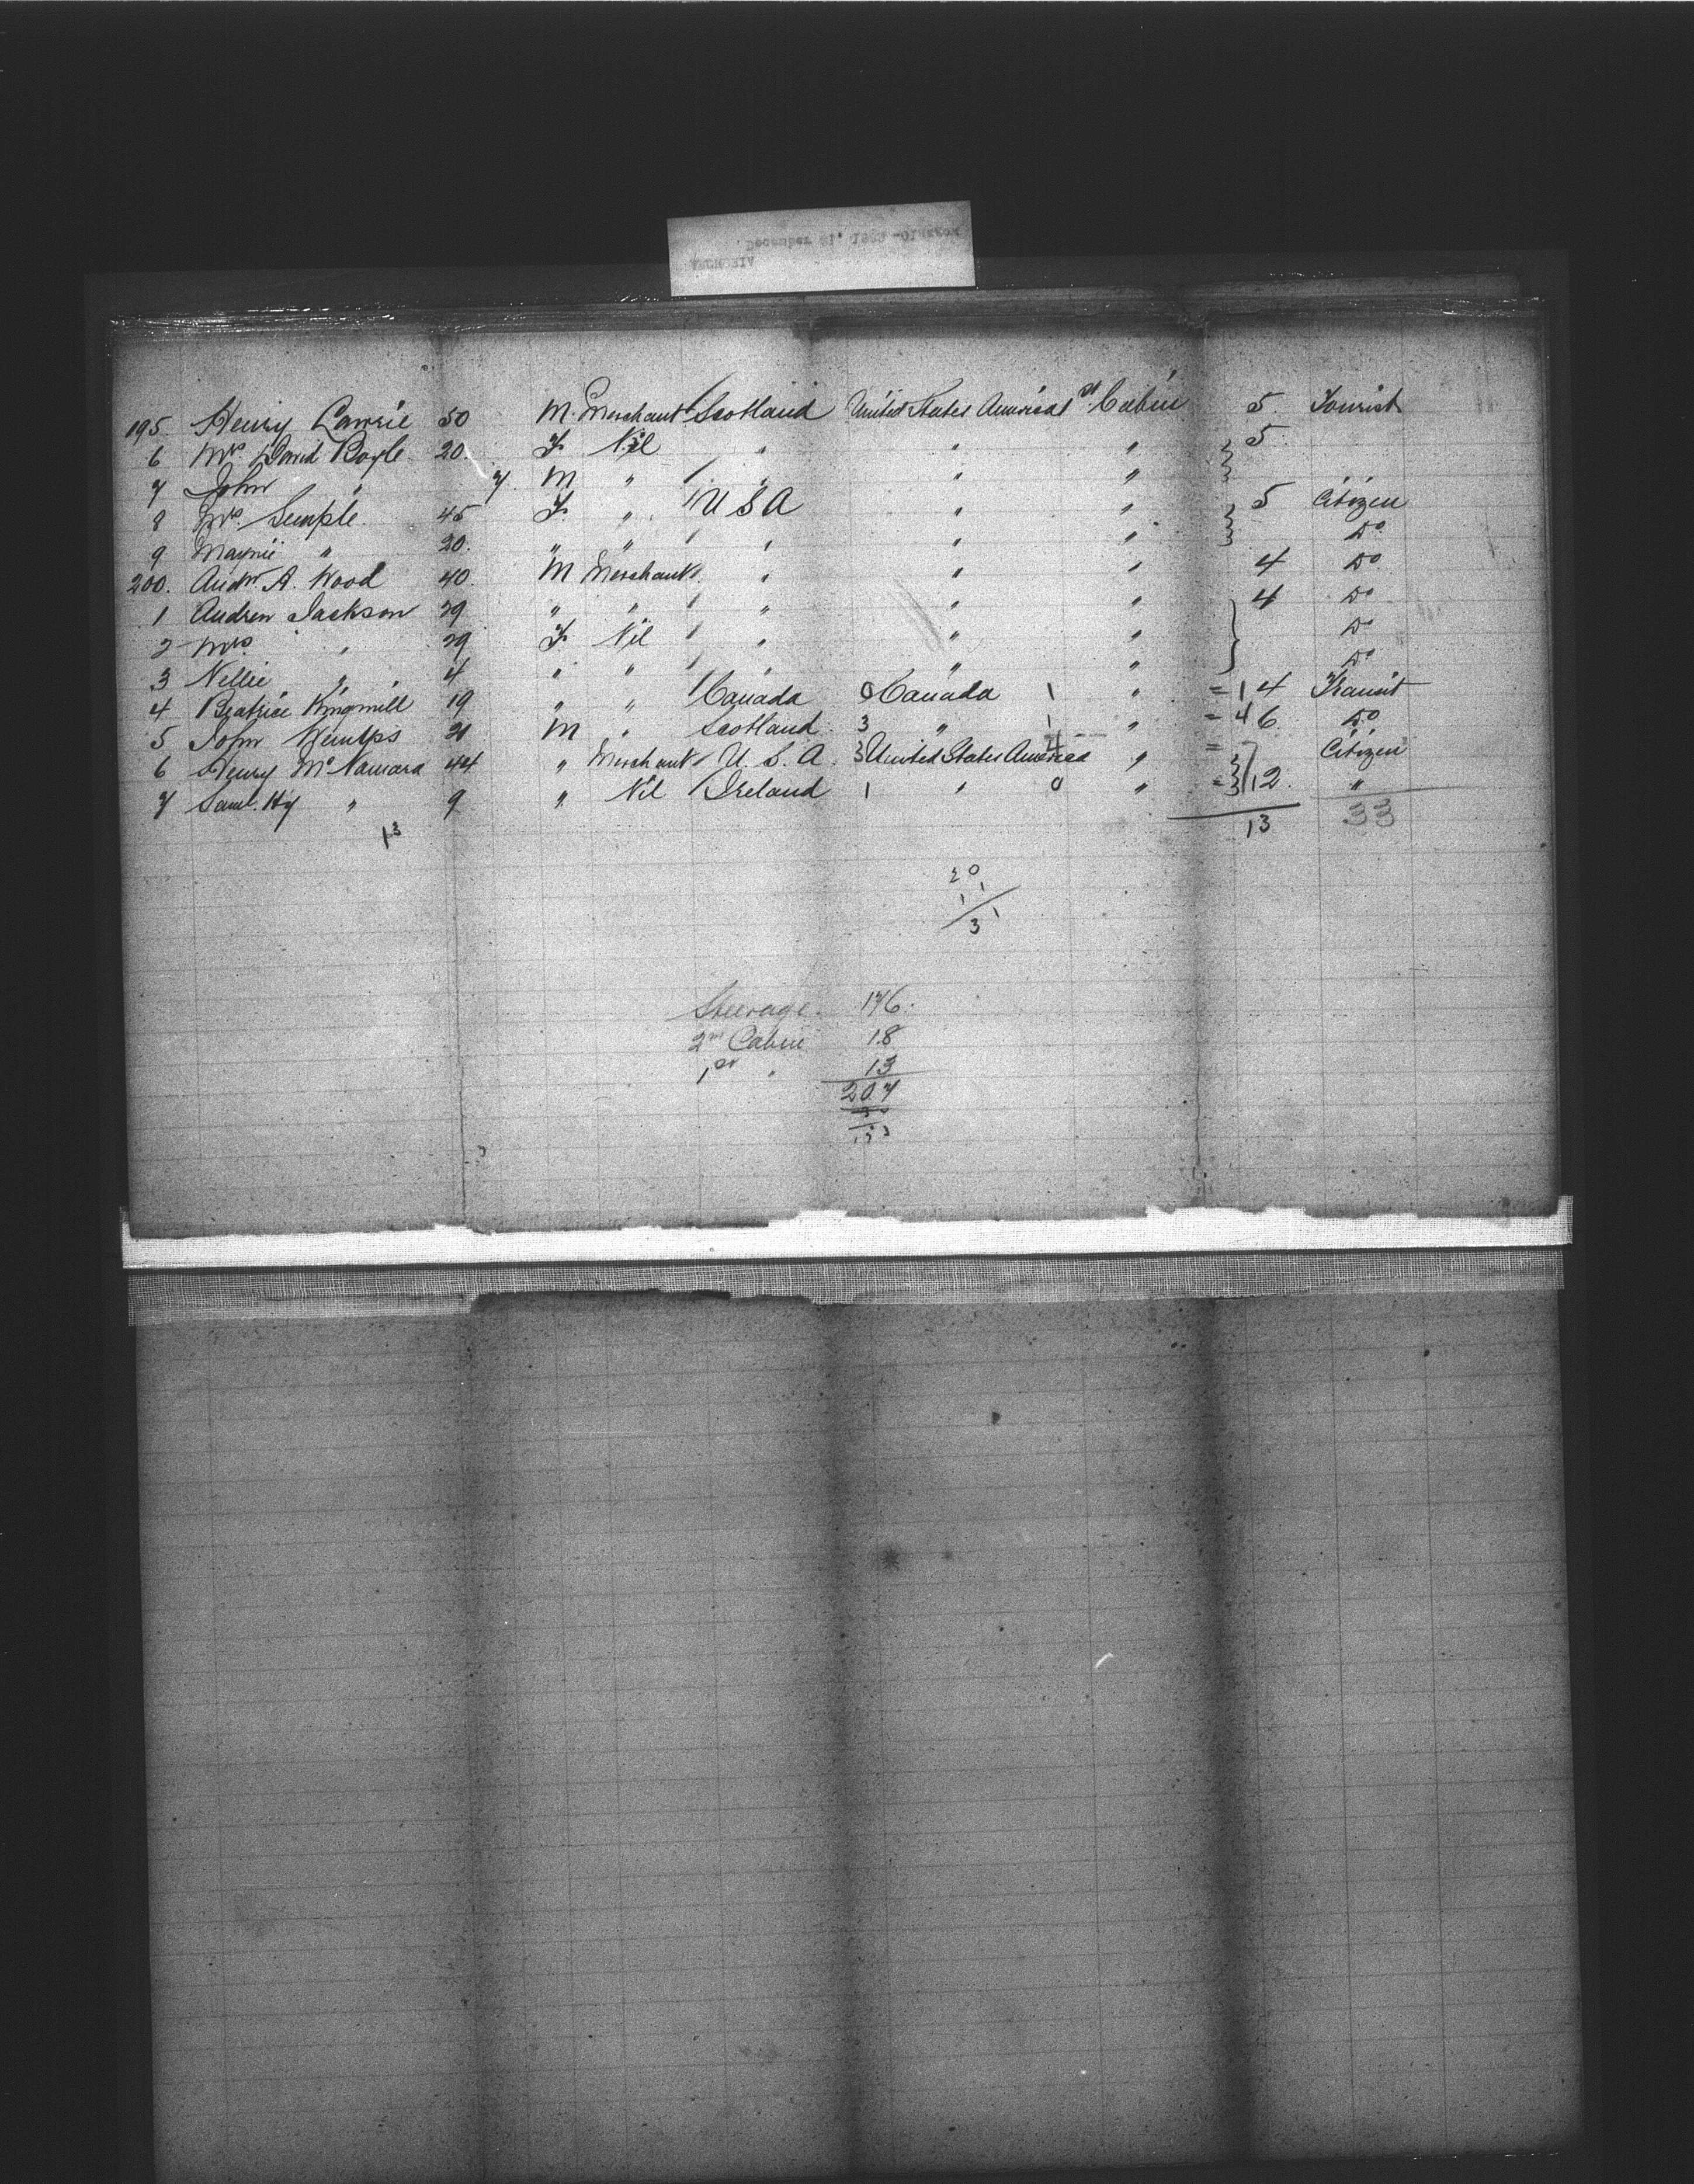 195. Henry Lawrie 50 M. Merchant Scotland United States America 1st Cabin 5. Tourist
6 Mrs David Boyle. 20. F. Nil " " " 5.
7 John " 7. M " " " "
8 Mrs. Semple. 45 F. " U S A " " 5 Citizen
9 " 20. " " " " " Do
200. Andw. A. Wood 40. M Merchant " " " 4 Do
1 Andrew Jackson 29 " " " " " 4 Do
2 Mrs " 29 F. Nil " " " Do
3 Nellie " 4 " " " " " Do
4 Beatrice Kingmill 19 " " Canada 0 Canada 1 " = 1 4 Transit
5 John 21 M " Scotland 3 " 1 " = 4 6 Do
6 Henry McNamara 44 " Merchant U. S. A. 3 United States America " = Citizen
7 Saml. Hy " 9 " Nil Ireland 1 " 0 " = 3 12. "
13 13 33
20
1 1
3 1
Steerage. 176.
2nd Cabin 18
1st " 13
207